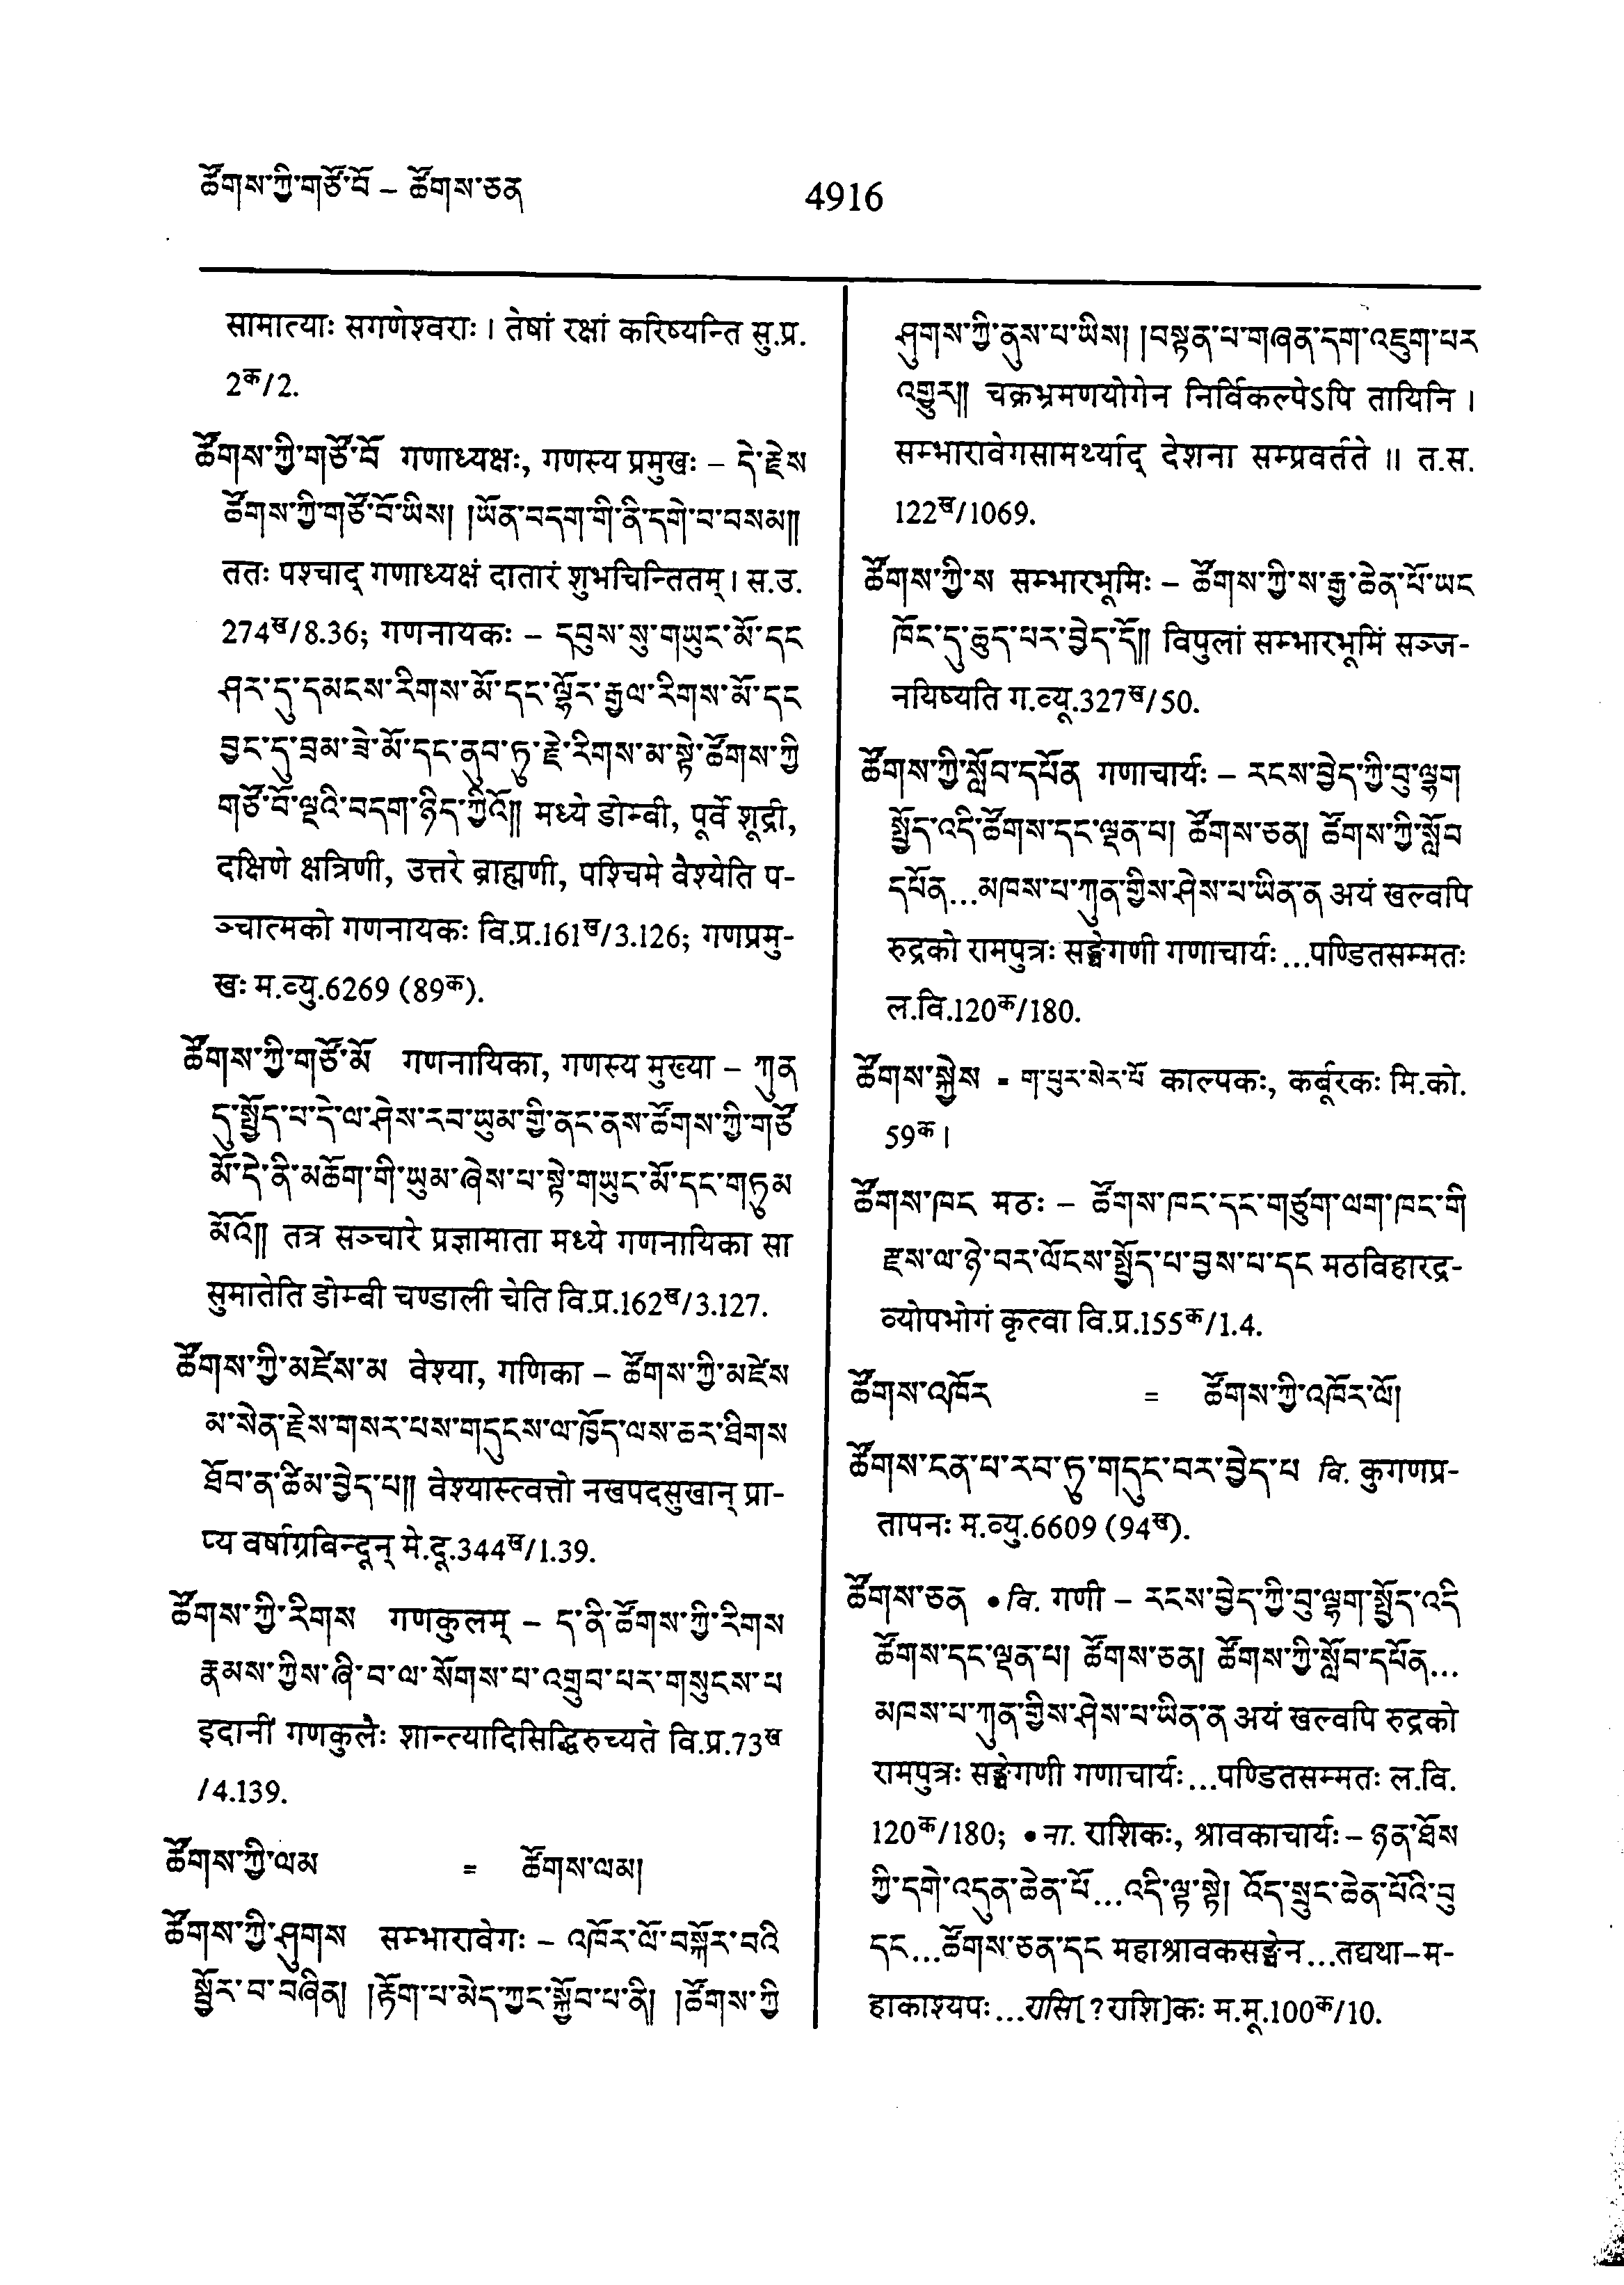 ཚོགས་ཀྱི་གཙོ་བོ – ཚོགས་ཅན
4916
सामात्याः सगणेश्वराः । तेषां रक्षां करिष्यन्ति सु.प्र.
2क/2.
ཚོགས་ཀྱི་གཙོ་བོ गणाध्यक्षः, गणस्य प्रमुखः – དེ་རྗེས
ཚོགས་ཀྱི་གཙོ་བོ་ཡིས། །ཡོན་བདག་གི་ནི་དགེ་བ་བསམ༎
ततः पश्चाद् गणाध्यक्षं दातारं शुभचिन्तितम् । स.उ.
274ख/8.36; गणनायकः – དབུས་སུ་གཡུང་མོ་དང
ཤར་དུ་དམངས་རིགས་མོ་དང་ལྷོར་རྒྱལ་རིགས་མོ་དང
བྱང་དུ་བྲམ་ཟེ་མོ་དང་ནུབ་ཏུ་རྗེ་རིགས་མ་སྟེ་ཚོགས་ཀྱི
གཙོ་བོ་ལྔའི་བདག་ཉིད་ཀྱིའོ༎ मध्ये डोम्बी, पूर्वे शूद्री,
दक्षिणे क्षत्रिणी, उत्तरे ब्राह्मणी, पश्चिमे वैश्येति प-
ञ्चात्मको गणनायकः वि.प्र.161ख/3.126; गणप्रमु-
खः म.व्यु.6269 (89क).
ཚོགས་ཀྱི་གཙོ་མོ गणनायिका, गणस्य मुख्या – ཀུན
དུ་སྤྱོད་པ་དེ་ལ་ཤེས་རབ་ཡུམ་གྱི་ནང་ནས་ཚོགས་ཀྱི་གཙོ
མོ་དེ་ནི་མཆོག་གི་ཡུམ་ཞེས་པ་སྟེ་གཡུང་མོ་དང་གཏུམ
མོའོ༎ तत्र सञ्चारे प्रज्ञामाता मध्ये गणनायिका सा
सुमातेति डोम्बी चण्डाली चेति वि.प्र.162ख/3.127.
ཚོགས་ཀྱི་མཛེས་མ वेश्या, गणिका – ཚོགས་ཀྱི་མཛེས
མ་སེན་རྗེས་གསར་པས་གདུངས་ལ་ཁྱོད་ལས་ཆར་ཐིགས
ཐོབ་ན་ཚིམ་བྱེད་པ༎ वेश्यास्त्वत्तो नखपदसुखान् प्रा-
प्य वर्षाग्रबिन्दून् मे.दू.344ख/1.39.
ཚོགས་ཀྱི་རིགས गणकुलम् – ད་ནི་ཚོགས་ཀྱི་རིགས
རྣམས་ཀྱིས་ཞི་བ་ལ་སོགས་པ་འགྲུབ་པར་གསུངས་པ
इदानीं गणकुलैः शान्त्यादिसिद्धिरुच्यते वि.प्र.73ख
/4.139.
ཚོགས་ཀྱི་ལམ = ཚོགས་ལམ།
ཚོགས་ཀྱི་ཤུགས सम्भारावेगः – འཁོར་ལོ་བསྐོར་བའི
སྦྱོར་བ་བཞིན། །རྟོག་པ་མེད་ཀྱང་སྐྱོབ་པ་ནི། །ཚོགས་ཀྱི
ཤུགས་ཀྱི་ནུས་པ་ཡིས། །བསྟན་པ་གཞན་དག་འཇུག་པར
འགྱུར༎ चक्रभ्रमणयोगेन निर्विकल्पेऽपि तायिनि ।
सम्भारावेगसामर्थ्याद् देशना सम्प्रवर्तते ॥ त.स.
122ख/1069.
ཚོགས་ཀྱི་ས सम्भारभूमिः – ཚོགས་ཀྱི་ས་རྒྱ་ཆེན་པོ་ཡང
ཁོང་དུ་ཆུད་པར་བྱེད་དོ༎ विपुलां सम्भारभूमिं सञ्ज-
नयिष्यति ग.व्यू.327ख/50.
ཚོགས་ཀྱི་སློབ་དཔོན गणाचार्यः – རངས་བྱེད་ཀྱི་བུ་ལྷག
སྤྱོད་འདི་ཚོགས་དང་ལྡན་པ། ཚོགས་ཅན། ཚོགས་ཀྱི་སློབ
དཔོན...མཁས་པ་ཀུན་གྱིས་ཤེས་པ་ཡིན་ན अयं खल्वपि
रुद्रको रामपुत्रः सङ्घेगणी गणाचार्यः...पण्डितसम्मतः
ल.वि.120क/180.
ཚོགས་སྐྱེས = ག་པུར་སེར་པོ काल्पकः, कर्बूरकः मि.को.
59क ।
ཚོགས་ཁང मठः – ཚོགས་ཁང་དང་གཙུག་ལག་ཁང་གི
རྫས་ལ་ཉེ་བར་ལོངས་སྤྱོད་པ་བྱས་པ་དང मठविहारद्र-
व्योपभोगं कृत्वा वि.प्र.155क/1.4.
ཚོགས་འཁོར = ཚོགས་ཀྱི་འཁོར་ལོ།
ཚོགས་ངན་པ་རབ་ཏུ་གདུང་བར་བྱེད་པ वि. कुगणप्र-
तापनः म.व्यु.6609 (94ख).
ཚོགས་ཅན • वि. गणी – རངས་བྱེད་ཀྱི་བུ་ལྷག་སྤྱོད་འདི
ཚོགས་དང་ལྡན་པ། ཚོགས་ཅན། ཚོགས་ཀྱི་སློབ་དཔོན...
མཁས་པ་ཀུན་གྱིས་ཤེས་པ་ཡིན་ན अयं खल्वपि रुद्रको
रामपुत्रः सङ्घेगणी गणाचार्यः...पण्डितसम्मतः ल.वि.
120क/180; • ना. राशिकः, श्रावकाचार्यः – ཉན་ཐོས
ཀྱི་དགེ་འདུན་ཆེན་པོ...འདི་ལྟ་སྟེ། འོད་སྲུང་ཆེན་པོའི་བུ
དང...ཚོགས་ཅན་དང महाश्रावकसङ्घेन...तद्यथा–म-
हाकाश्यपः...रासि[?राशि]कः म.मू.100क/10.